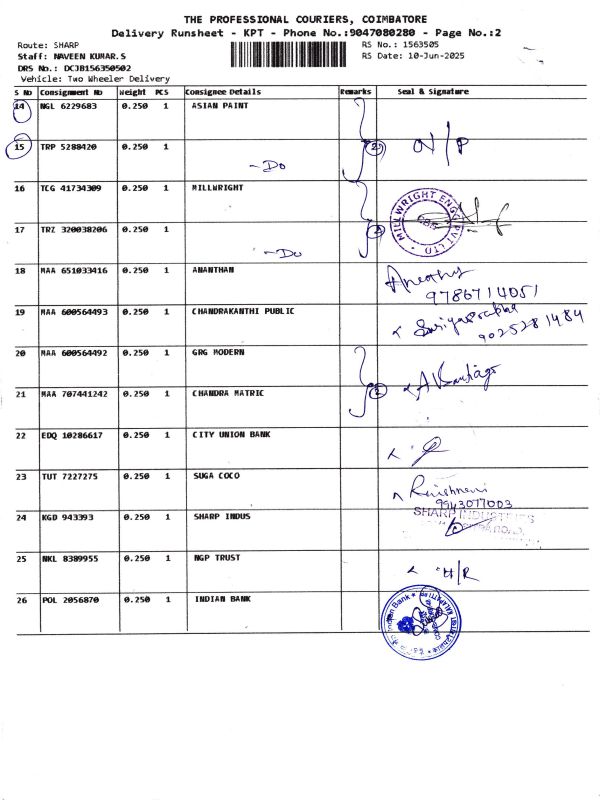 THE PROFESSIONAL COURIERS, COIMBATORE
Delivery Runsheet - KPT - Phone No.:9047080280 - Page No.:2
Route: SHARP
RS No.: 1563505
Staff: NAVEEN KUMAR.S
RS Date: 10-Jun-2025
DRS No.: DCJB156350502
Vehicle: Two Wheeler Delivery
S No Consignment No Weight PCS Consignee Details Remarks Seal & Signature
14 NGL 6229683 0.250 1 ASIAN PAINT
15 TRP 5288420 0.250 1 2 N/P
- Do
16 TCG 41734309 0.250 1 MILLWRIGHT
MILLWRIGHT ENGG PVT LTD
17 TRZ 320038206 0.250 1 2
- Do
18 MAA 651033416 0.250 1 ANANTHAN
9786714051
19 MAA 600564493 0.250 1 CHANDRAKANTHI PUBLIC
9025281484
20 MAA 600564492 0.250 1 GRG MODERN
21 MAA 707441242 0.250 1 CHANDRA MATRIC 2
22 EDQ 10286617 0.250 1 CITY UNION BANK
23 TUT 7227275 0.250 1 SUGA COCO
9943077003
24 KGD 943393 0.250 1 SHARP INDUS
SHARP INDUSTRIES
25 NKL 8389955 0.250 1 NGP TRUST
H/R
26 POL 2056870 0.250 1 INDIAN BANK
Indian Bank